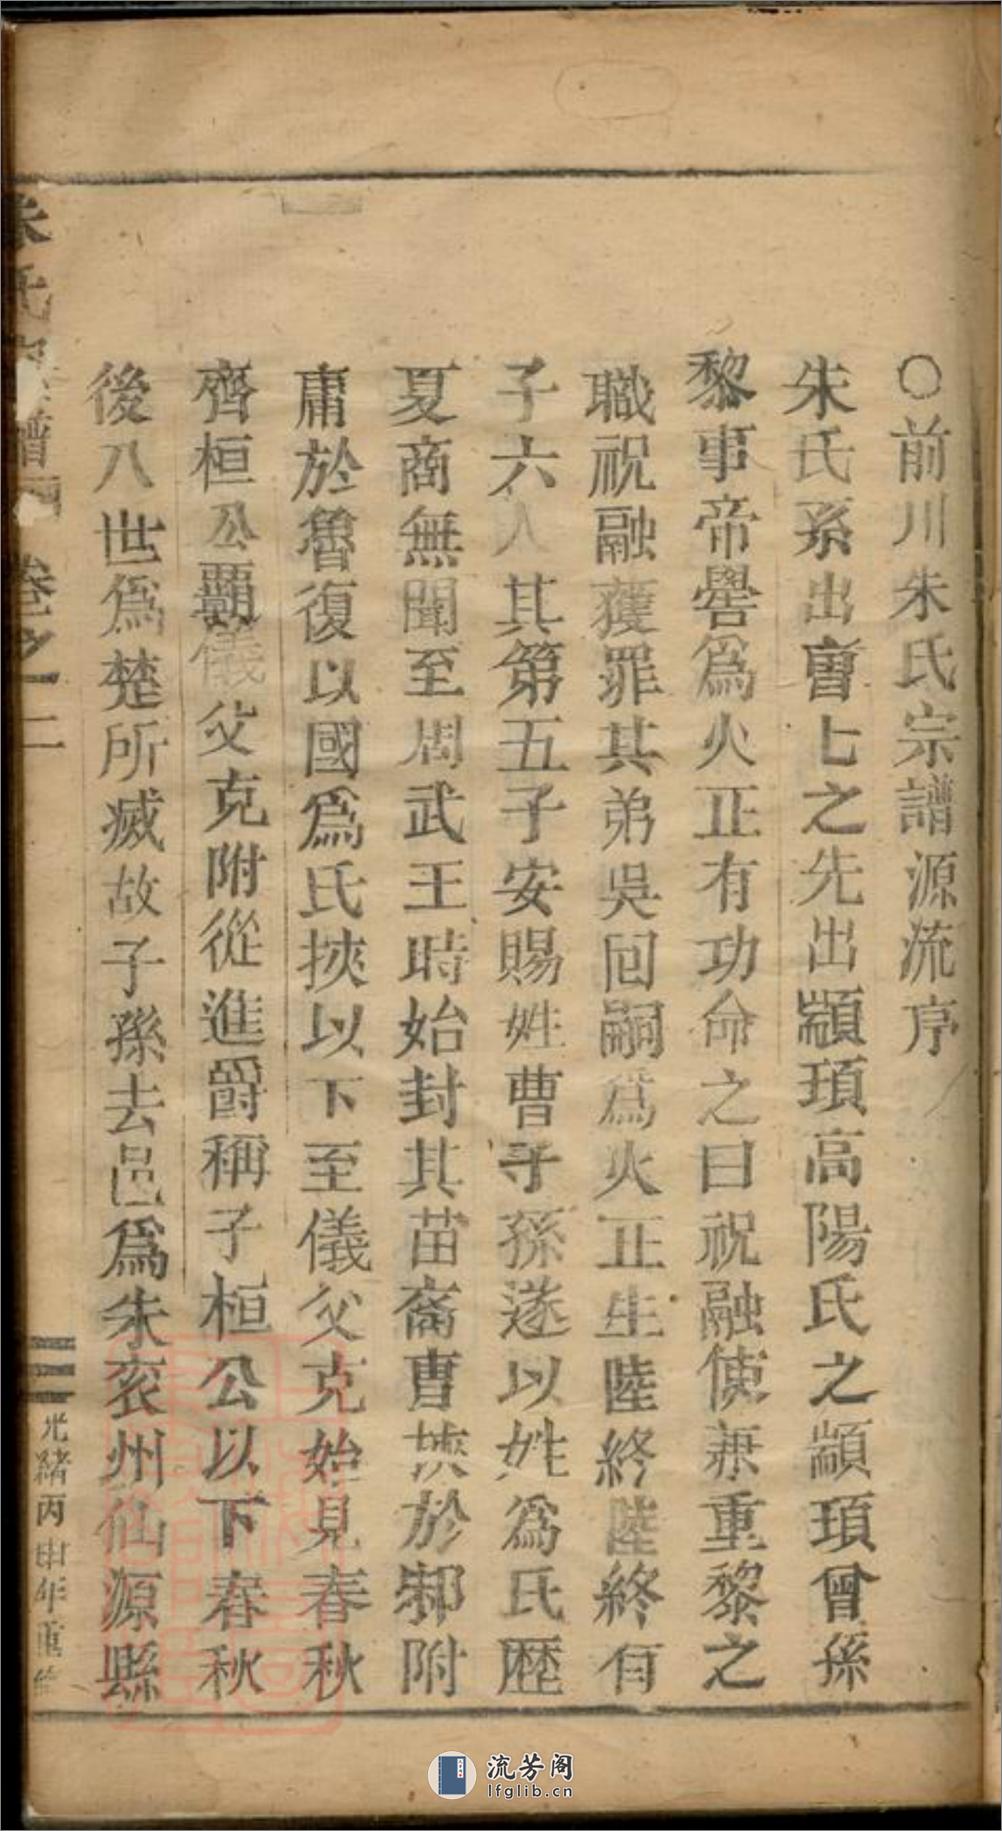 ○前川朱氏宗譜源流序
朱氏系出曺七之先出顓頊高陽氏之顓頊曾孫
黎事帝嚳爲火正有功命之曰祝融使兼重黎之
職祝融獲罪其弟吳回嗣爲火正生陸終陸終有
子六人其第五子安賜姓曹子孫遂以姓爲氏歴
夏商無聞至周武王時始封其苗裔曺挾於邾附
庸於魯復以國爲氏挾以下至儀父克始見春秋
齊桓公覇儀父克附從進爵稱子桓公以下春秋
後八世爲楚所滅故子孫去邑爲朱兖州仙源縣
朱氏宗譜 卷之一 二
光緒丙申年重修
流芳阁
lfglib.cn